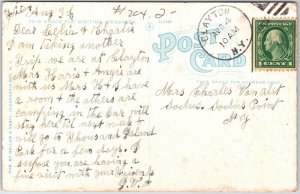 THIS SPACE FOR WRITING
POST CARD
CLAYTON
AUG 4
10 AM
N.Y.
1 CENT 1
Dear Celia & Charlie
I am taking another
trip we are at Clayton
Mrs Harris & Angie are
with us Mrs H & I have
a room & the others are
camping in the car will
stay here till next week
will go to Thousand Island
Park for a few days. I
suppose you are having a
fine visit with your
Mrs Charles Van Alst
Sodus, Sodus Point
N.Y.